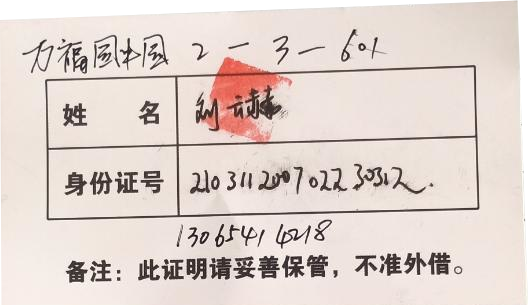 万福国中园 2-3-601
姓名 刘云赫
身份证号 210311200702230312.
13065414218
备注：此证明请妥善保管，不准外借。